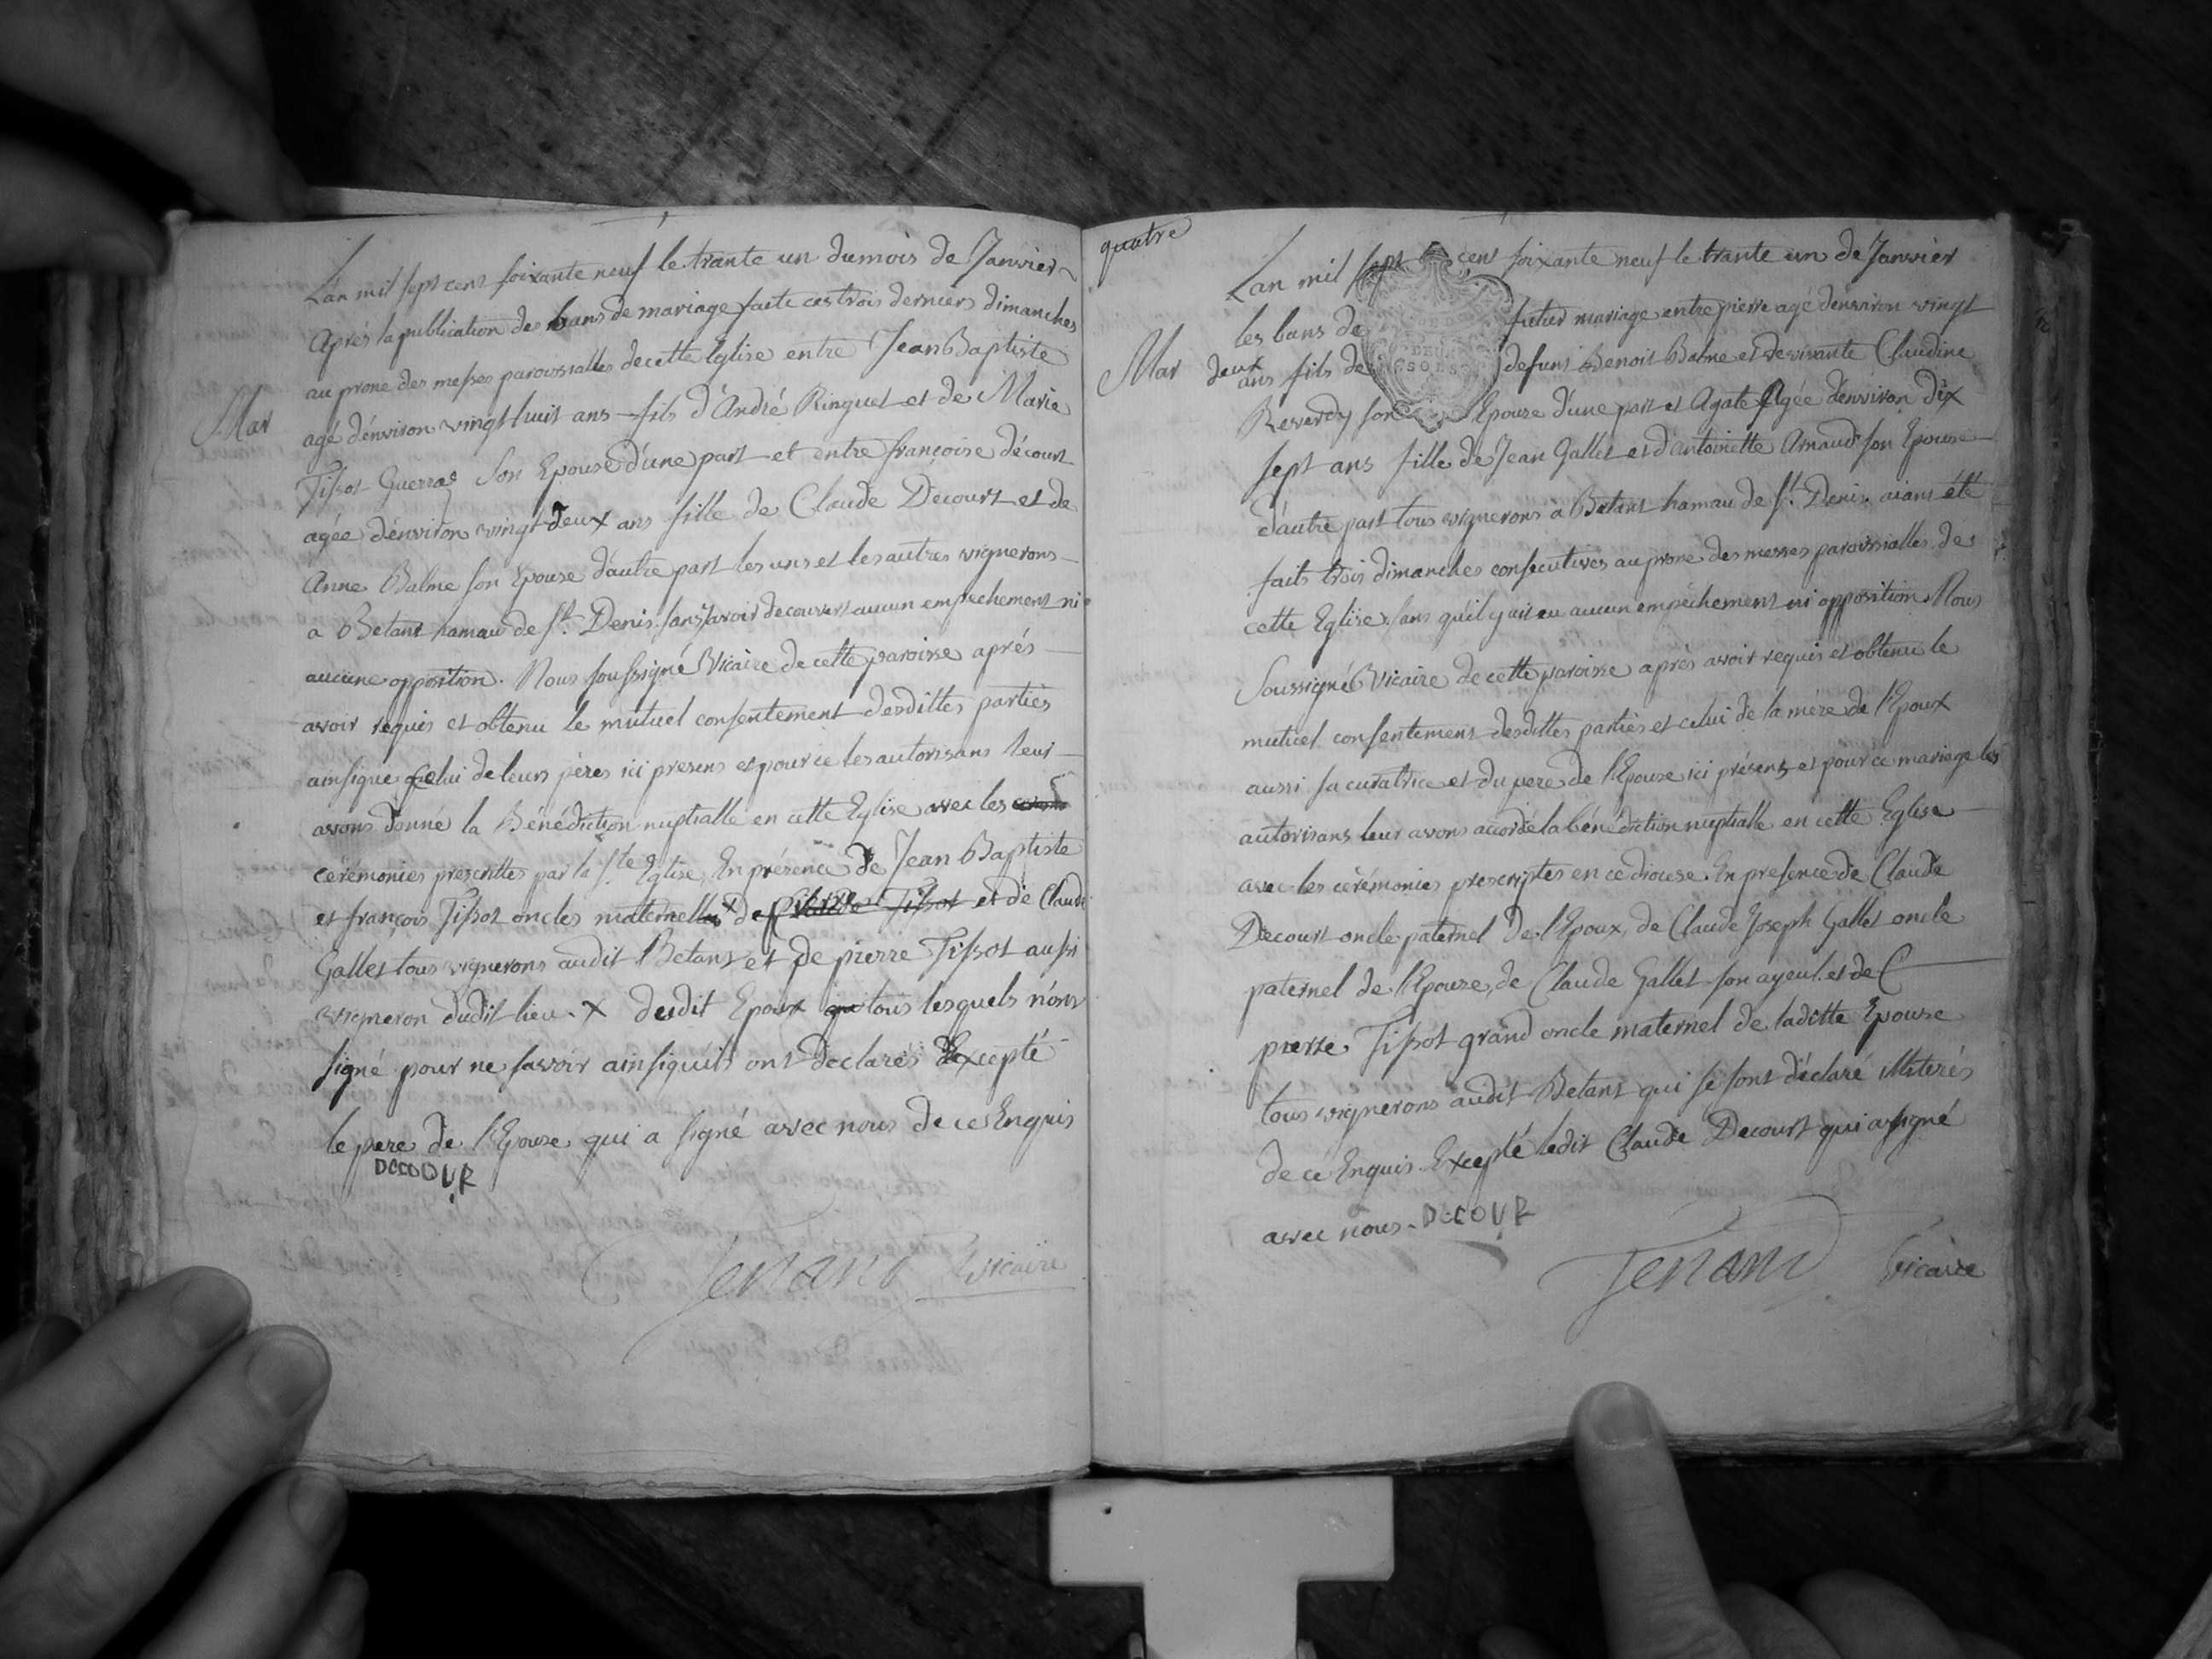 L'an mil sept cent soixante neuf le trante un du mois de Janvier
Aprés la publication des bans de mariage faite ces trois derniers dimanches
au prone des messes paroissialles de cette Eglise entre Jean Baptiste
Mar
agé d'environ vingt huit ans fils d'André Ringuet et de Marie
Tissot Guerraz Son Epouse d'une part et entre françoise décourt
agée d'environ vingt deux ans fille de Claude Decourt et de
Anne Balme son Epouse d'autre part les uns et les autres vignerons
a Betant hamau de St. Denis sans avoir decouvert aucun empechement ni
aucune opposition. Nous soussigné Vicaire de cette paroisse aprés
avoir requis et obtenu le mutuel consentement desdittes parties
ainsique celui de leurs péres ici presens et pour ce les autorisans leur
avons donné la Bénédiction nuptialle en cette Eglise avec les
cérémonies prescrittes par la Ste Eglise, En présence de Jean Baptiste
et françois Tissot oncles maternels x de Claude Tissot et de Claude
Gallet tous vignerons audit Betant et de pierre Tissot aussi
vigneron dudit lieu. X dudit Epoux tous lesquels n'ont
signé pour ne savoir ainsiqu'ils ont déclarés Excepté
le pere de l'Epouse qui a signé avec nous de ce Enquis
DECOUR
Tenand Vicaire
quatre
L'an mil sept cent soixante neuf le trante un de Janvier
les bans de futur mariage entre pierre agé d'environ vingt
Mar
deux
ans fils de defunt Benoit Balme et de vivante Claudine
DEUX
SOLS
Reverdy son Epouse d'une part et Agate Agée d'environ dix
sept ans fille de Jean Gallet et d'antoinette Arnaud son Epouse
d'autre part tous vignerons à Betant hamau de St. Denis aiant été
faits trois dimanches consecutives au prone des messes paroissialles de
cette Eglise sans qu'il y ait eu aucun empéchement ni opposition. Nous
Soussigné Vicaire de cette paroisse aprés avoir requis et obtenu le
mutuel consentement desdittes parties et celui de la mére de l'Epoux
aussi sa curatrice et du pere de l'Epouse ici présents et pour ce mariage les
autorisans leur avons accordé la bénédiction nuptialle en cette Eglise
avec les cérémonies prescriptes en ce diocese. En presence de Claude
Decourt oncle paternel de l'Epoux, de Claude Joseph Gallet oncle
paternel de l'Epouse, de Claude Gallet son ayeul et de C
pierre Tissot grand oncle maternel de laditte Epouse
tous vignerons audit Betant qui se sont déclaré illiterés
de ce Enquis Excepté ledit Claude Decourt qui a signé
avec nous. DECOUR
Tenand Vicaire